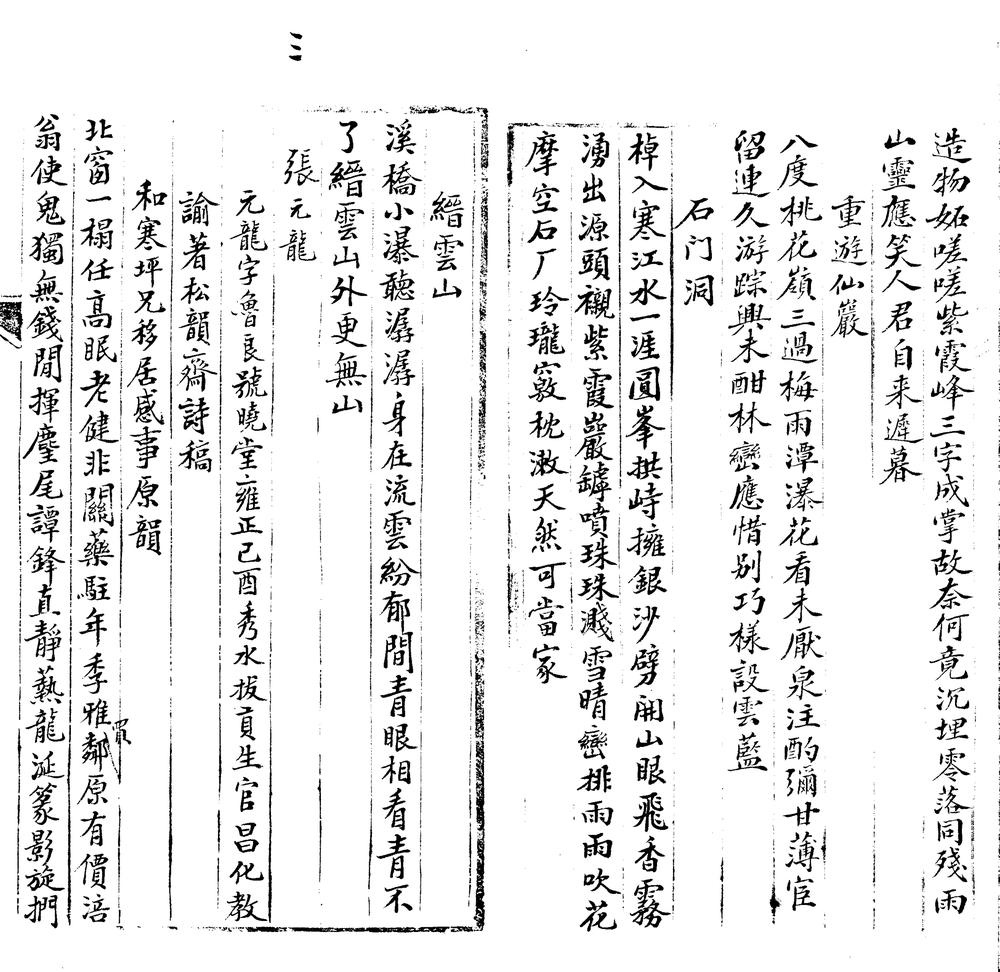 造物妬嗟嗟紫霞峰三字成掌故奈何竟沉埋零落同殘雨
山靈應笑人君自来遲暮
重遊仙巖
八度桃花嶺三過梅雨潭瀑花看未厭泉注酌彌甘薄宦
留連久游踪興未酣林巒應惜别巧樣設雲藍
石门洞
棹入寒江水一涯圓峯拱峙擁銀沙劈開山眼飛香霧
湧出源頭襯紫霞巖罅噴珠珠濺雪晴巒排雨雨吹花
摩空石厂玲瓏竅枕漱天然可當家
縉雲山
溪橋小瀑聽潺潺身在流雲紛郁間青眼相看青不
了縉雲山外更無山
張元龍
元龍字魯良號曉堂雍正己酉秀水拔貢生官昌化教
諭著松韻齋詩稿
和寒坪兄移居感事原韻
北窗一榻任高眠老健非關藥駐年季雅鄰原有價涪
買
翁使鬼獨無錢閒揮麈尾譚鋒直靜爇龍涎篆影旋捫